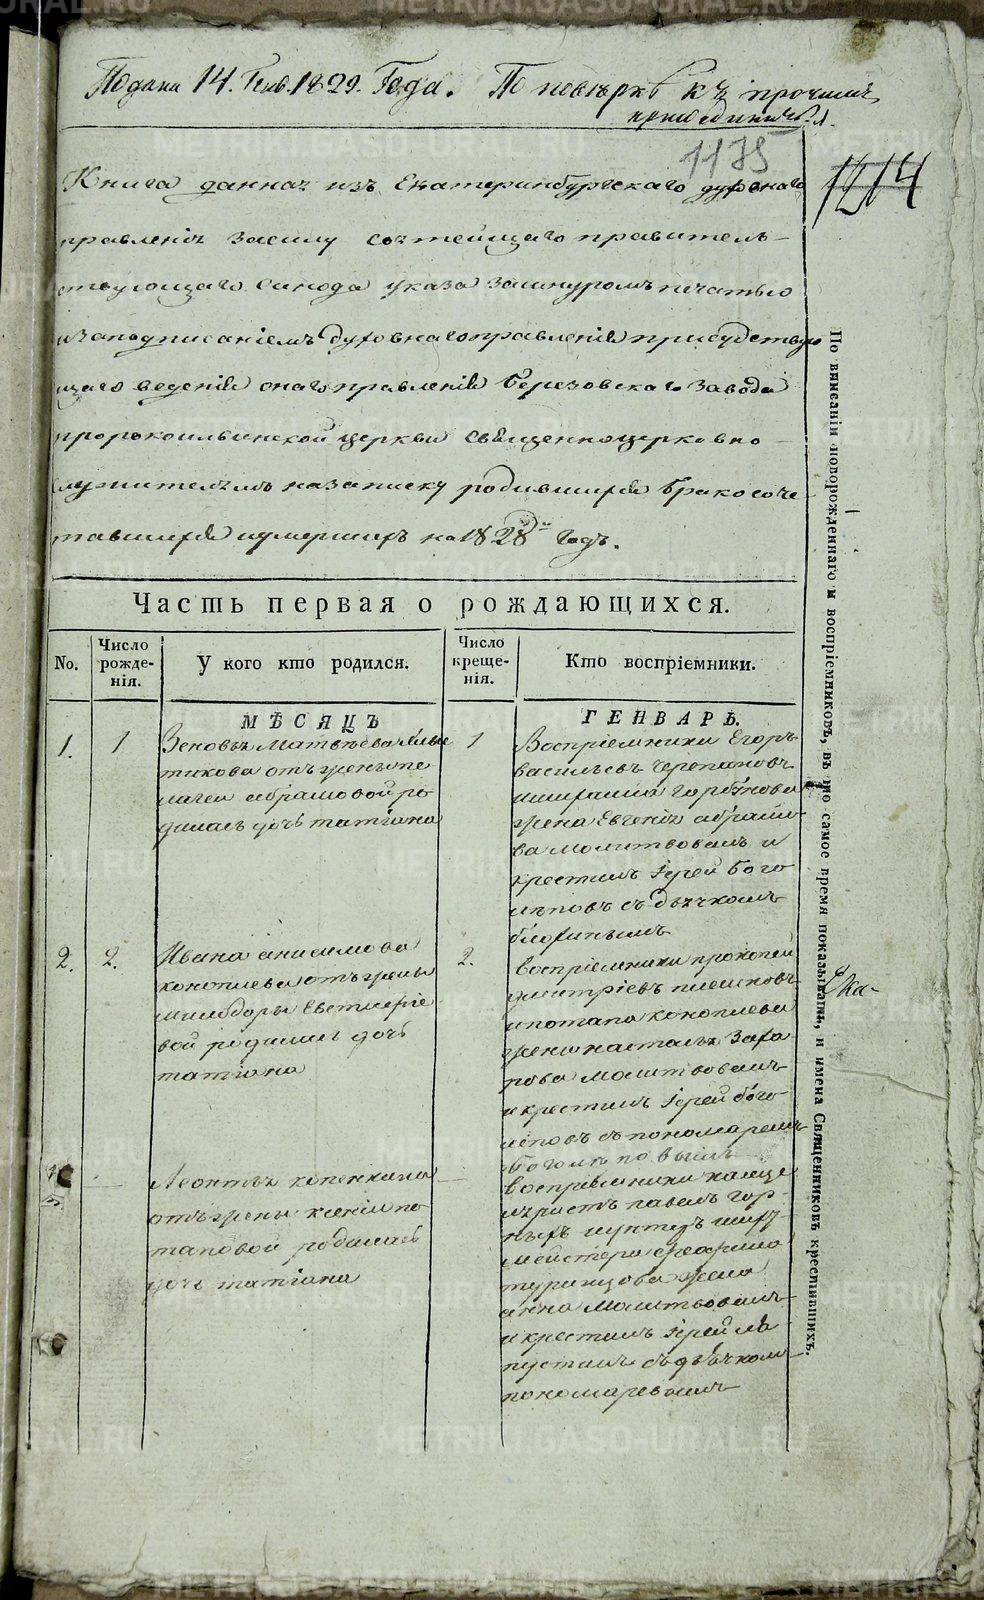 Подана 14. Генв. 1829. Года. По повѣркѣ къ прочимъ
1175
1214
Книга данная изъ Екатеринбургскаго духовнаго
правленія Засилу святейщаго правитель-
ствующаго Синода указа Зашнуромъ печатью
изаподписаніемъ духовнаго правленія присудствую
щаго веденія онаго правленія березовскаго Завода
пророкоильинской церкви священноцерковно-
служителямъ назаписку родившихся бракосоче
тавшихся иумершихъ на 1828й годъ.
Часть первая о рождающихся.
No.
Число рожде-нія.
У кого кто родился.
Число креще-нія.
Кто воспріемники.
МѢСЯЦЪ
ГЕНВАРЬ.
1.
1
Зеновья Матвѣева
тикова отъ жены пе
лагеи абрамовой ро
дилась дочь татіана
1
Воспріемники Егоръ
васильевъ Черепановъ
горбунова
жена Евгенія абрамо
ва молитвовалъ и
крестилъ Іерей бого
лѣповъ съ дьячкомъ
2.
2.
Ивана анисимова
конюшева отъ жены
ѳеодоры Евстигнѣе
вой родилась дочь
татіана
2.
воспріемники прокопей
дмитріевъ плешковъ
ипотапа конюшева
жена насталья Заха
рова молитвовалъ
икрестилъ Іерей бого
лѣповъ съ пономаремъ
боголѣповымъ
Леонтья копенкина
отъ жены ксеніи по
таповой родилась
дочь татіана
воспріемники канце
ляристъ павелъ гор-
мейстера
турицова жена
анна молитвовалъ
икрестилъ Іерей ла
пустинъ съ дьячкомъ
пономаревымъ
По внесеніи новорожденнаго и воспріемниковъ, въ то самое время показывать, и имена Священниковъ крестившихъ.
Ека-